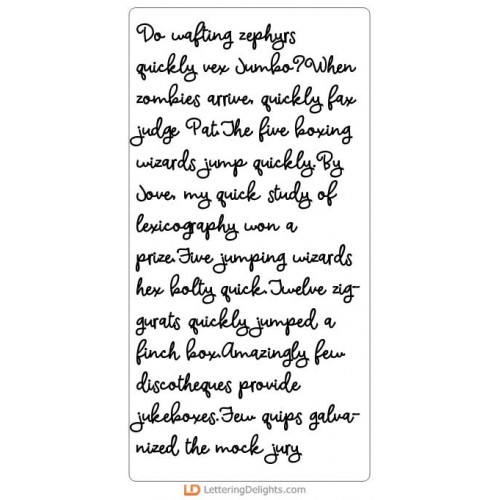 Do wafting zephyrs
quickly vex Jumbo?When
zombies arrive, quickly fax
judge Pat.The five boxing
wizards jump quickly.By
Jove, my quick study of
lexicography won a
prize.Five jumping wizards
hex bolty quick.Twelve zig-
gurats quickly jumped a
finch box.Amazingly few
discotheques provide
jukeboxes.Few quips galva-
nized the mock jury
LD LetteringDelights.com